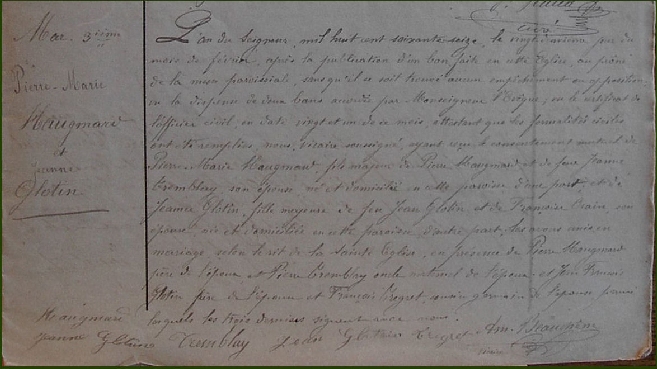 Mar. 3ième
Pierre-Marie
Haugmard
et
Jeanne
Glotin
curé
L'an du Seigneur, mil huit cent soixante-seize, le vingt deuxième jour du
mois de février, après la publication d'un ban faite en cette Eglise, au prône
de la messe paroissiale, sans qu'il se soit trouvé aucun empêchement ou opposition
vu la dispense de deux bans accordée par Monseigneur l'Evêque, vu le certificat de
l'officier civil en date vingt et un de ce mois, attestant que les formalités civiles
ont été remplies, nous, vicaire soussigné, ayant reçu le consentement mutuel de
Pierre-Marie Haugmard, fils majeur de Pierre Haugmard et de feue Jeanne
Tremblay son épouse né et domicilié en cette paroisse d'une part, et de
Jeanne Glotin fille majeure de feu Jean Glotin et de Françoise son
épouse, née et domiciliée en cette paroisse, d'autre part, les avons unis en
mariage selon le rit de la Sainte Eglise, en présence de Pierre Haugmard
père de l'époux et Pierre Tremblay oncle de l'époux et Jean François
Glotin frère de l'épouse et François cousin germain de l'épouse parmi
lesquels les trois derniers signent avec nous.
Haugmard
Jeanne Glotin Tremblay Jean Glotin